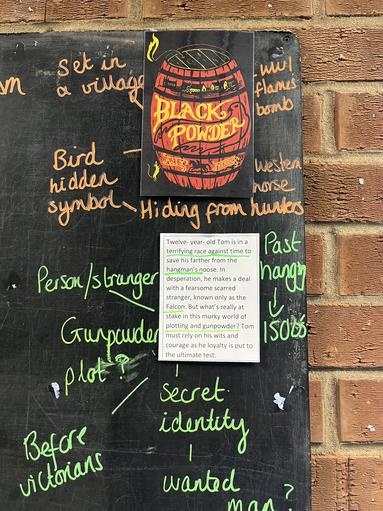 Set in
a village
flames
bomb
BLACK
POWDER
Bird
hidden
symbol
Western
horse
Hiding from hunters
Twelve- year- old Tom is in a
terrifying race against time to
save his farther from the
hangman's noose. In
desperation, he makes a deal
with a fearsome scarred
stranger, known only as the
Falcon. But what's really at
stake in this murky world of
plotting and gunpowder? Tom
must rely on his wits and
courage as he loyalty is put to
the ultimate test.
Past
hangin
1500s
Person/stranger
Gunpowder
plot?
Secret
identity
Before
victorians
wanted
man?